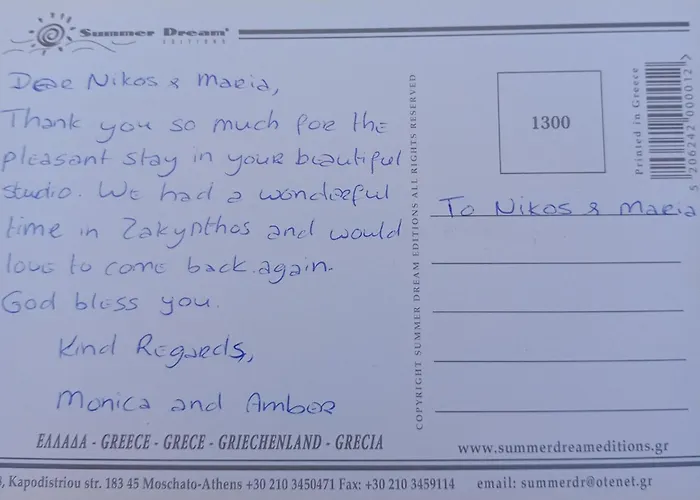 Summer Dream
EDITIONS
Dear Nikos & Maria,
Thank you so much for the
pleasant stay in your beautiful
studio. We had a wonderful
time in Zakynthos and would
love to come back again.
God bless you.
Kind Regards,
Monica and Amber
ΕΛΛΑΔΑ - GREECE - GRECE - GRIECHENLAND - GRECIA
COPYRIGHT SUMMER DREAM EDITIONS ALL RIGHTS RESERVED
1300
Printed in Greece
5 206242 000012
To Nikos & Maria
www.summerdreameditions.gr
, Kapodistriou str. 183 45 Moschato-Athens +30 210 3450471 Fax: +30 210 3459114 email: summerdr@otenet.gr